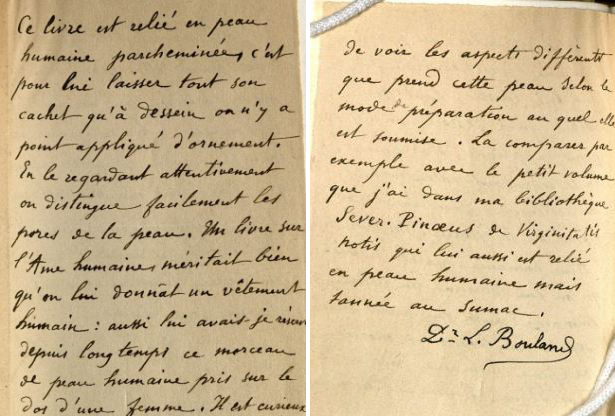 Ce livre est relié en peau
humaine parcheminée, c'est
pour lui laisser tout son
cachet qu'à dessein on n'y a
point appliqué d'ornement.
En le regardant attentivement
on distingue facilement les
pores de la peau. Un livre sur
l'Ame humaine méritait bien
qu'on lui donnât un vêtement
humain : aussi lui avais-je réservé
depuis longtemps ce morceau
de peau humaine pris sur le
dos d'une femme. Il est curieux
de voir les aspects différents
que prend cette peau selon le
mode de préparation au quel elle
est soumise. La comparer par
exemple avec le petit volume
que j'ai dans ma bibliothèque
Sever. Pinæus de Virginitatis
notis qui lui aussi est relié
en peau humaine mais
tannée au sumac.
Dr L. Bouland